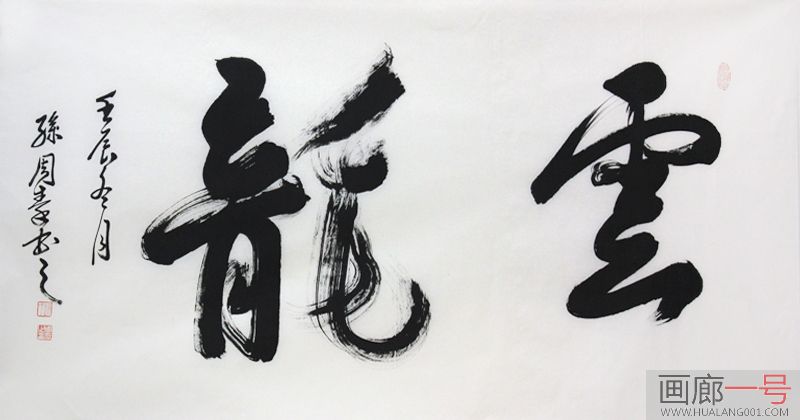 雲龍
壬辰冬月
孫周孝书之
画廊一号
WWW.HUALANG001.COM